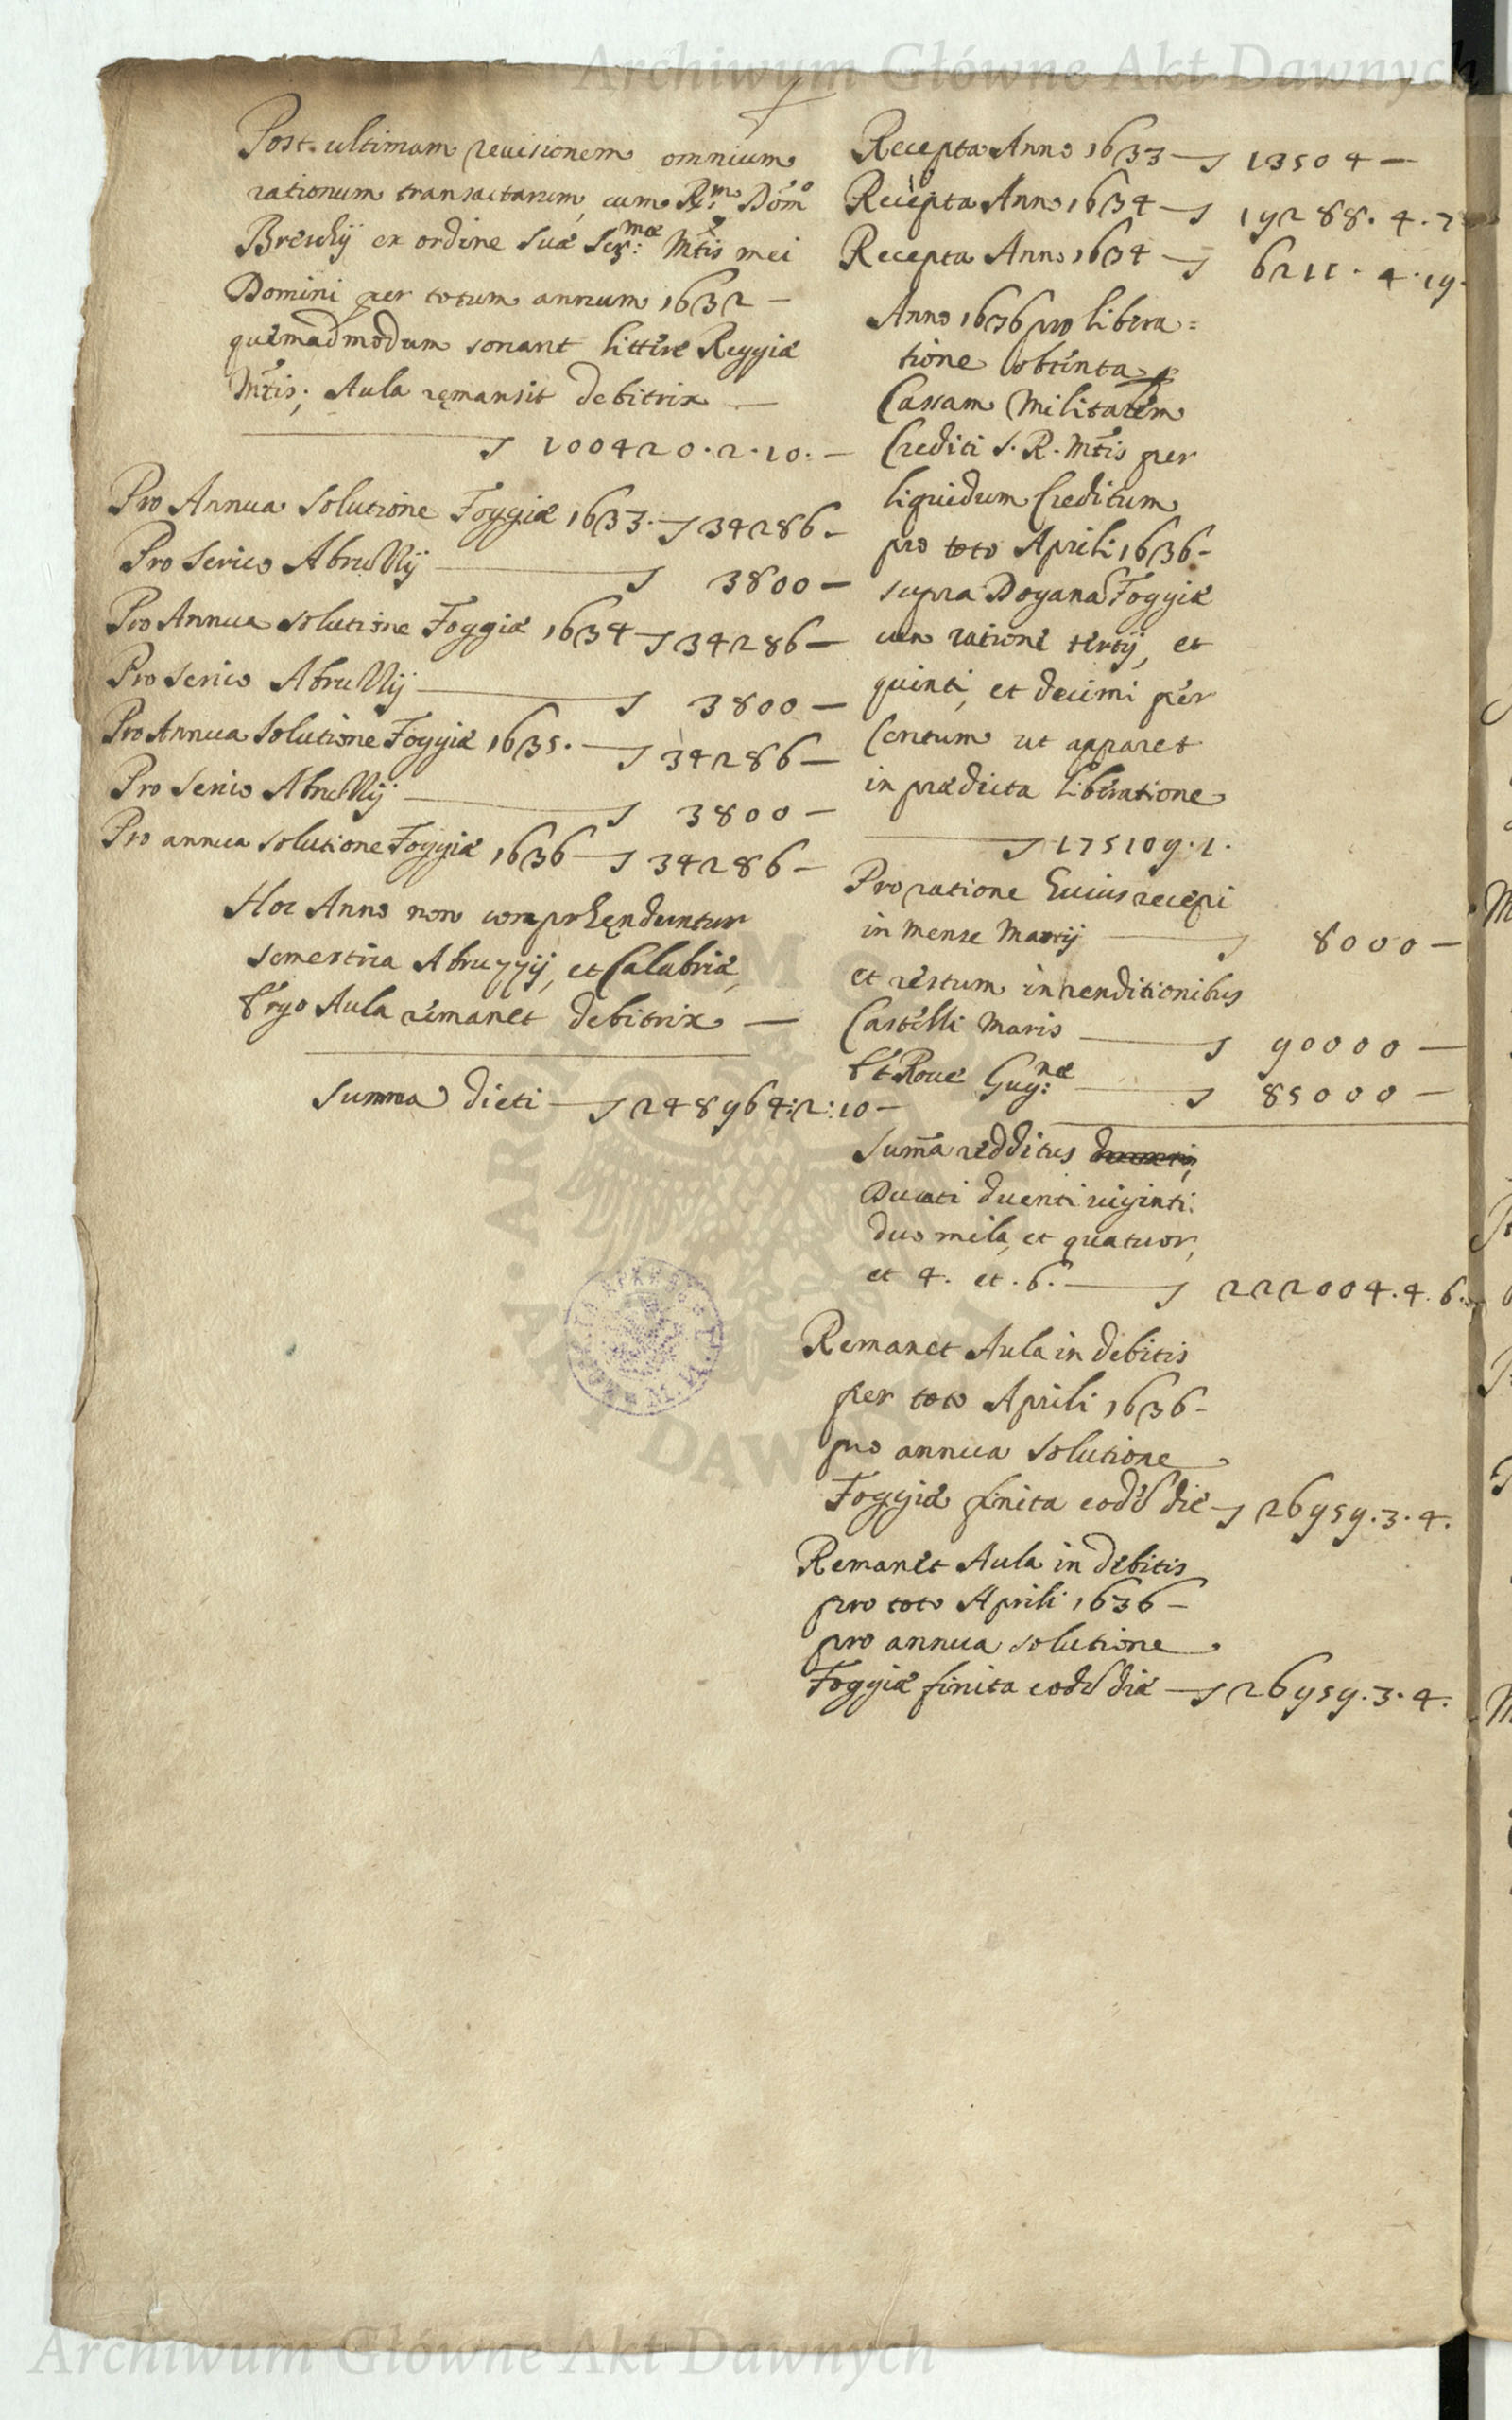 Archiwum Główne Akt Dawnych
Post ultimam reuisionem omnium
rationum transactarum, cum R.mo Domo
Breschij ex ordine suæ Ser:mæ Mtis mei
Domini per totum annum 1632 —
quemadmodum sonant litteræ Reggiæ
Mtis; Aula remansit debitrix —
100420.2.10. —
Pro Annua solutione Foggiæ 1633. 34286 —
Pro Serico Abruzzij 3800 —
Pro Annua solutione Foggiæ 1634 34286 —
Pro Serico Abruzzij 3800 —
Pro Annua solutione Foggiæ 1635. 34286 —
Pro Serico Abruzzij 3800 —
Pro annua solutione Foggiæ 1636 34286 —
Hoc Anno non comprhenduntur
semestria Abruzzij, et Calabriæ,
Ergo Aula remanet debitrix —
Summa dicti 248964:2:10 —
Recepta Anno 1633 13504 —
Recepta Anno 1634 19288.4.
Recepta Anno 1634 6211.4.19.
Anno 1636 pro libera=
tione obtenta
Cassam Militarem
Crediti S. R. Mtis per
liquidum Creditum
pro toto Aprili 1636 —
supra Dogana Foggiæ
cum ratione tertij, et
quinti, et decimi per
Centum ut apparet
in prædicta liberatione
175109.1.
Pro ratione Cuius recepi
in mense Martij 8000 —
et restum in renditionibus
Castelli Maris 90000 —
Et Rouæ Gug:næ 85000 —
Suma redditus
Ducati duenti uiginti
duo mila, et quatuor,
et 4. et .6. 222004.4.6.
Remanet Aula in debitis
per toto Aprili 1636 —
pro annua solutione
Foggiæ finita eodē die 26959.3.4.
Remanet Aula in debitis
pro toto Aprili 1636 —
pro annua solutione
Foggiæ finita eodē die 26959.3.4.
Archiwum Główne Akt Dawnych